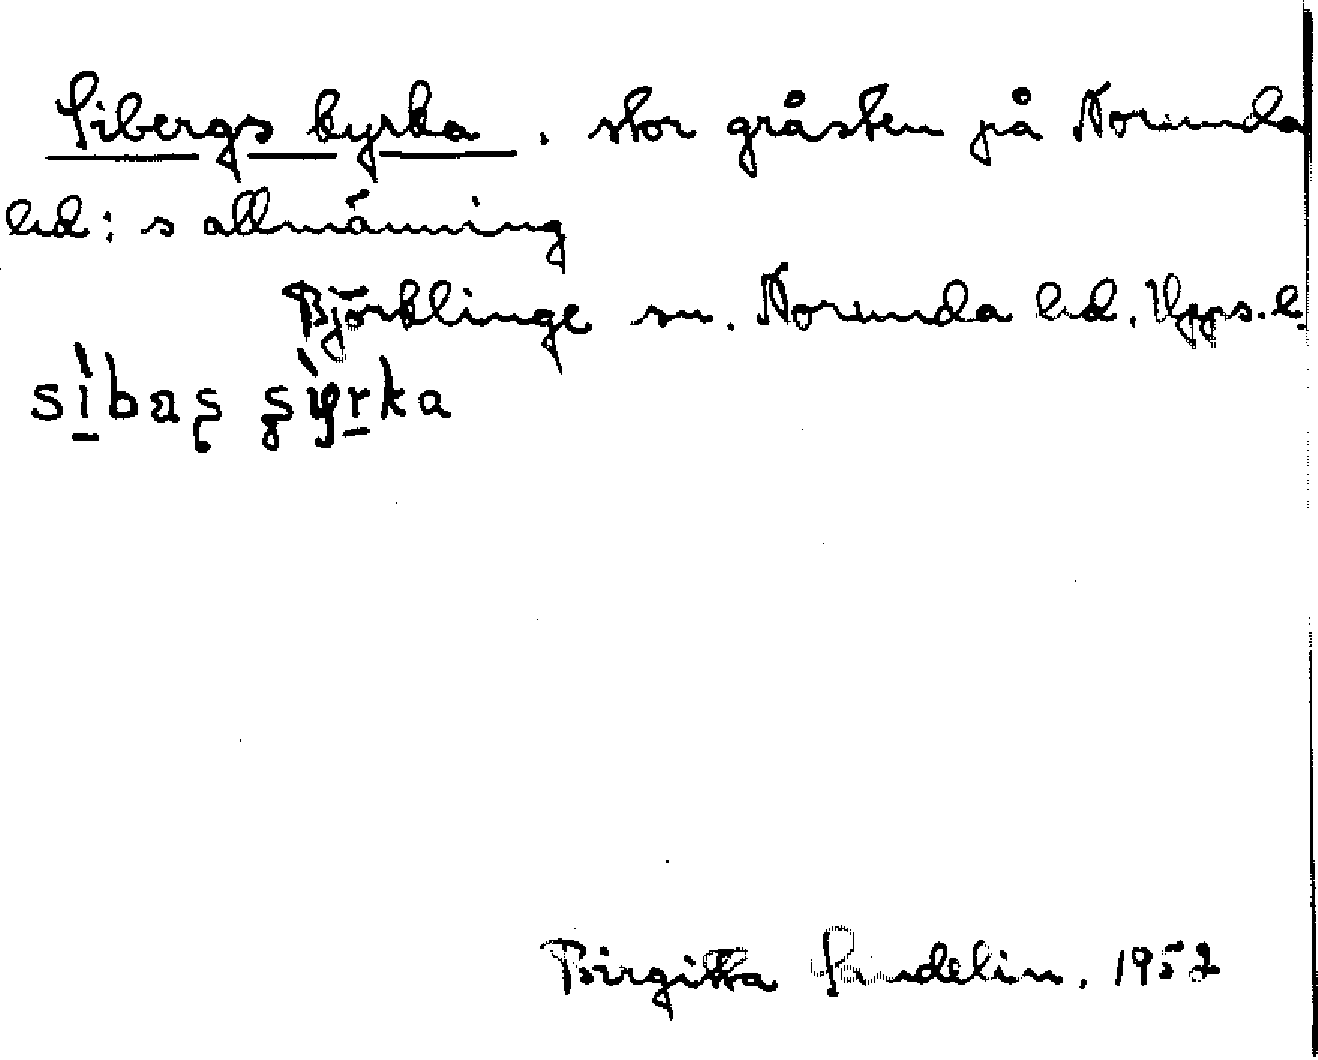 Sibergs kyrka. stor gråsten på Norunda
hd: s allmänning
Björklinge sn. Norunda hd. Upps. l.
sìbaʂ ʂỳrka
Birgitta Sundelin. 1952